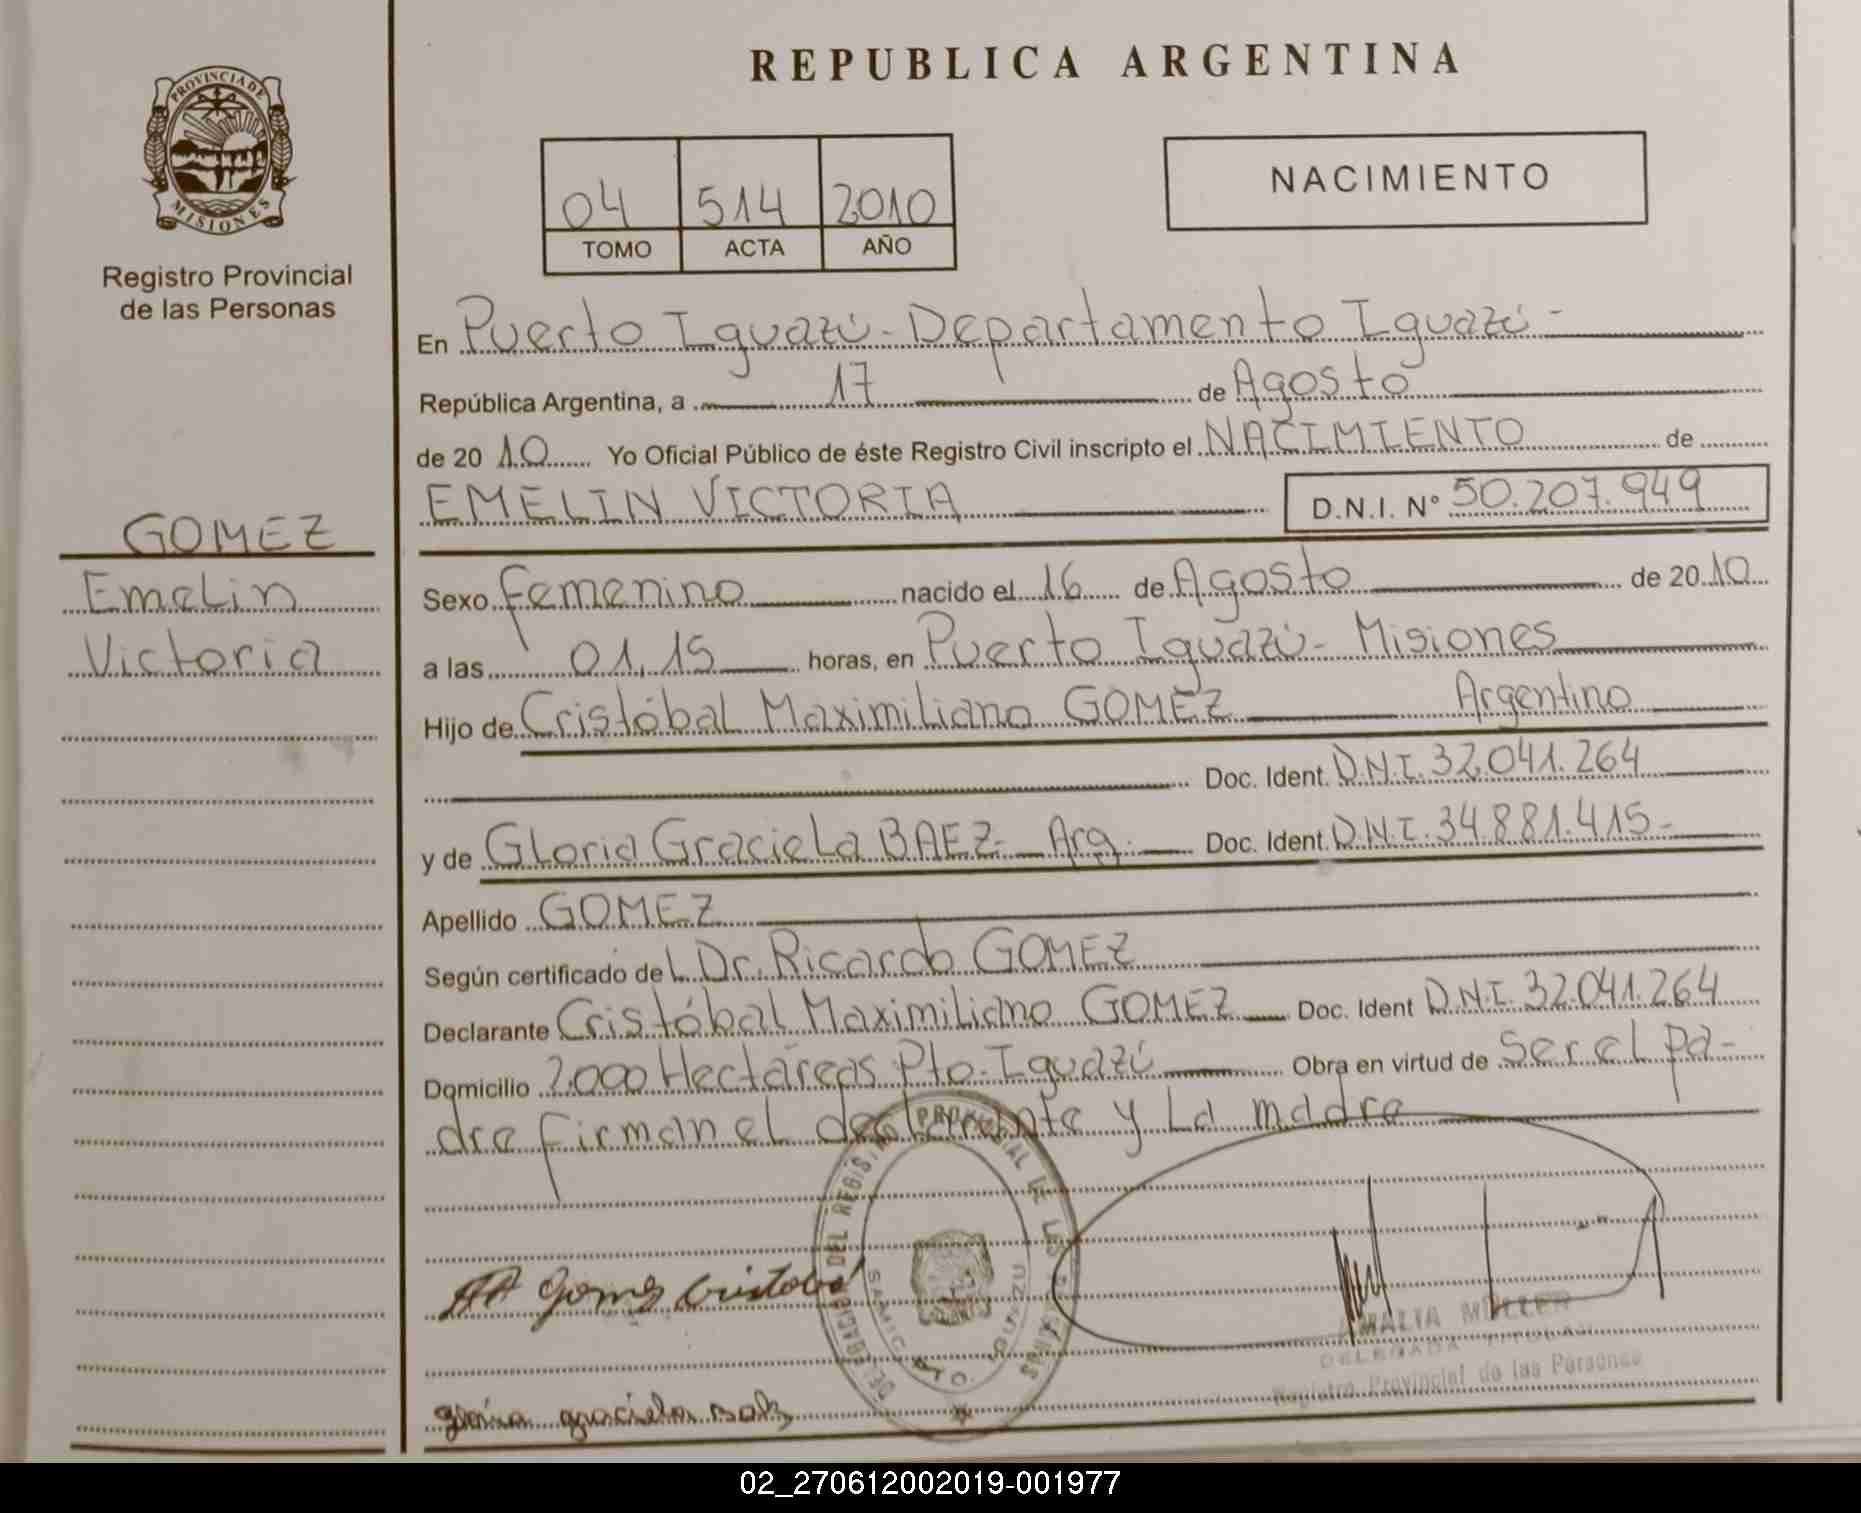 REPUBLICA ARGENTINA
PROVINCIA DE
MISIONES
Registro Provincial
de las Personas
04 514 2010
TOMO ACTA AÑO
NACIMIENTO
En Puerto Iguazú - Departamento Iguazú -
República Argentina, a 17 de Agosto
de 2010 Yo Oficial Público de éste Registro Civil inscripto el NACIMIENTO de
EMELIN VICTORIA D.N.I. Nº 50.207.949
GOMEZ
Emelin
Victoria
Sexo Femenino nacido el 16 de Agosto de 2010
a las 01,15 horas, en Puerto Iguazú - Misiones
Hijo de Cristóbal Maximiliano GOMEZ Argentino
Doc. Ident. D.N.I. 32.041.264
y de Gloria Graciela BAEZ - Arg. Doc. Ident. D.N.I. 34.881.415 -
Apellido GOMEZ
Según certificado de L Dr. Ricardo GOMEZ
Declarante Cristóbal Maximiliano GOMEZ Doc. Ident D.N.I. 32.041.264
Domicilio 2.000 Hectáreas Pto. Iguazú Obra en virtud de ser el pa-
dre firman el declarante y La madre
PROVINCIAL DE LAS
Gomez Cristobal
AMALIA MÜLLER
DELEGADA TITULAR
Registro Provincial de las Personas
gloria graciela
02_270612002019-001977